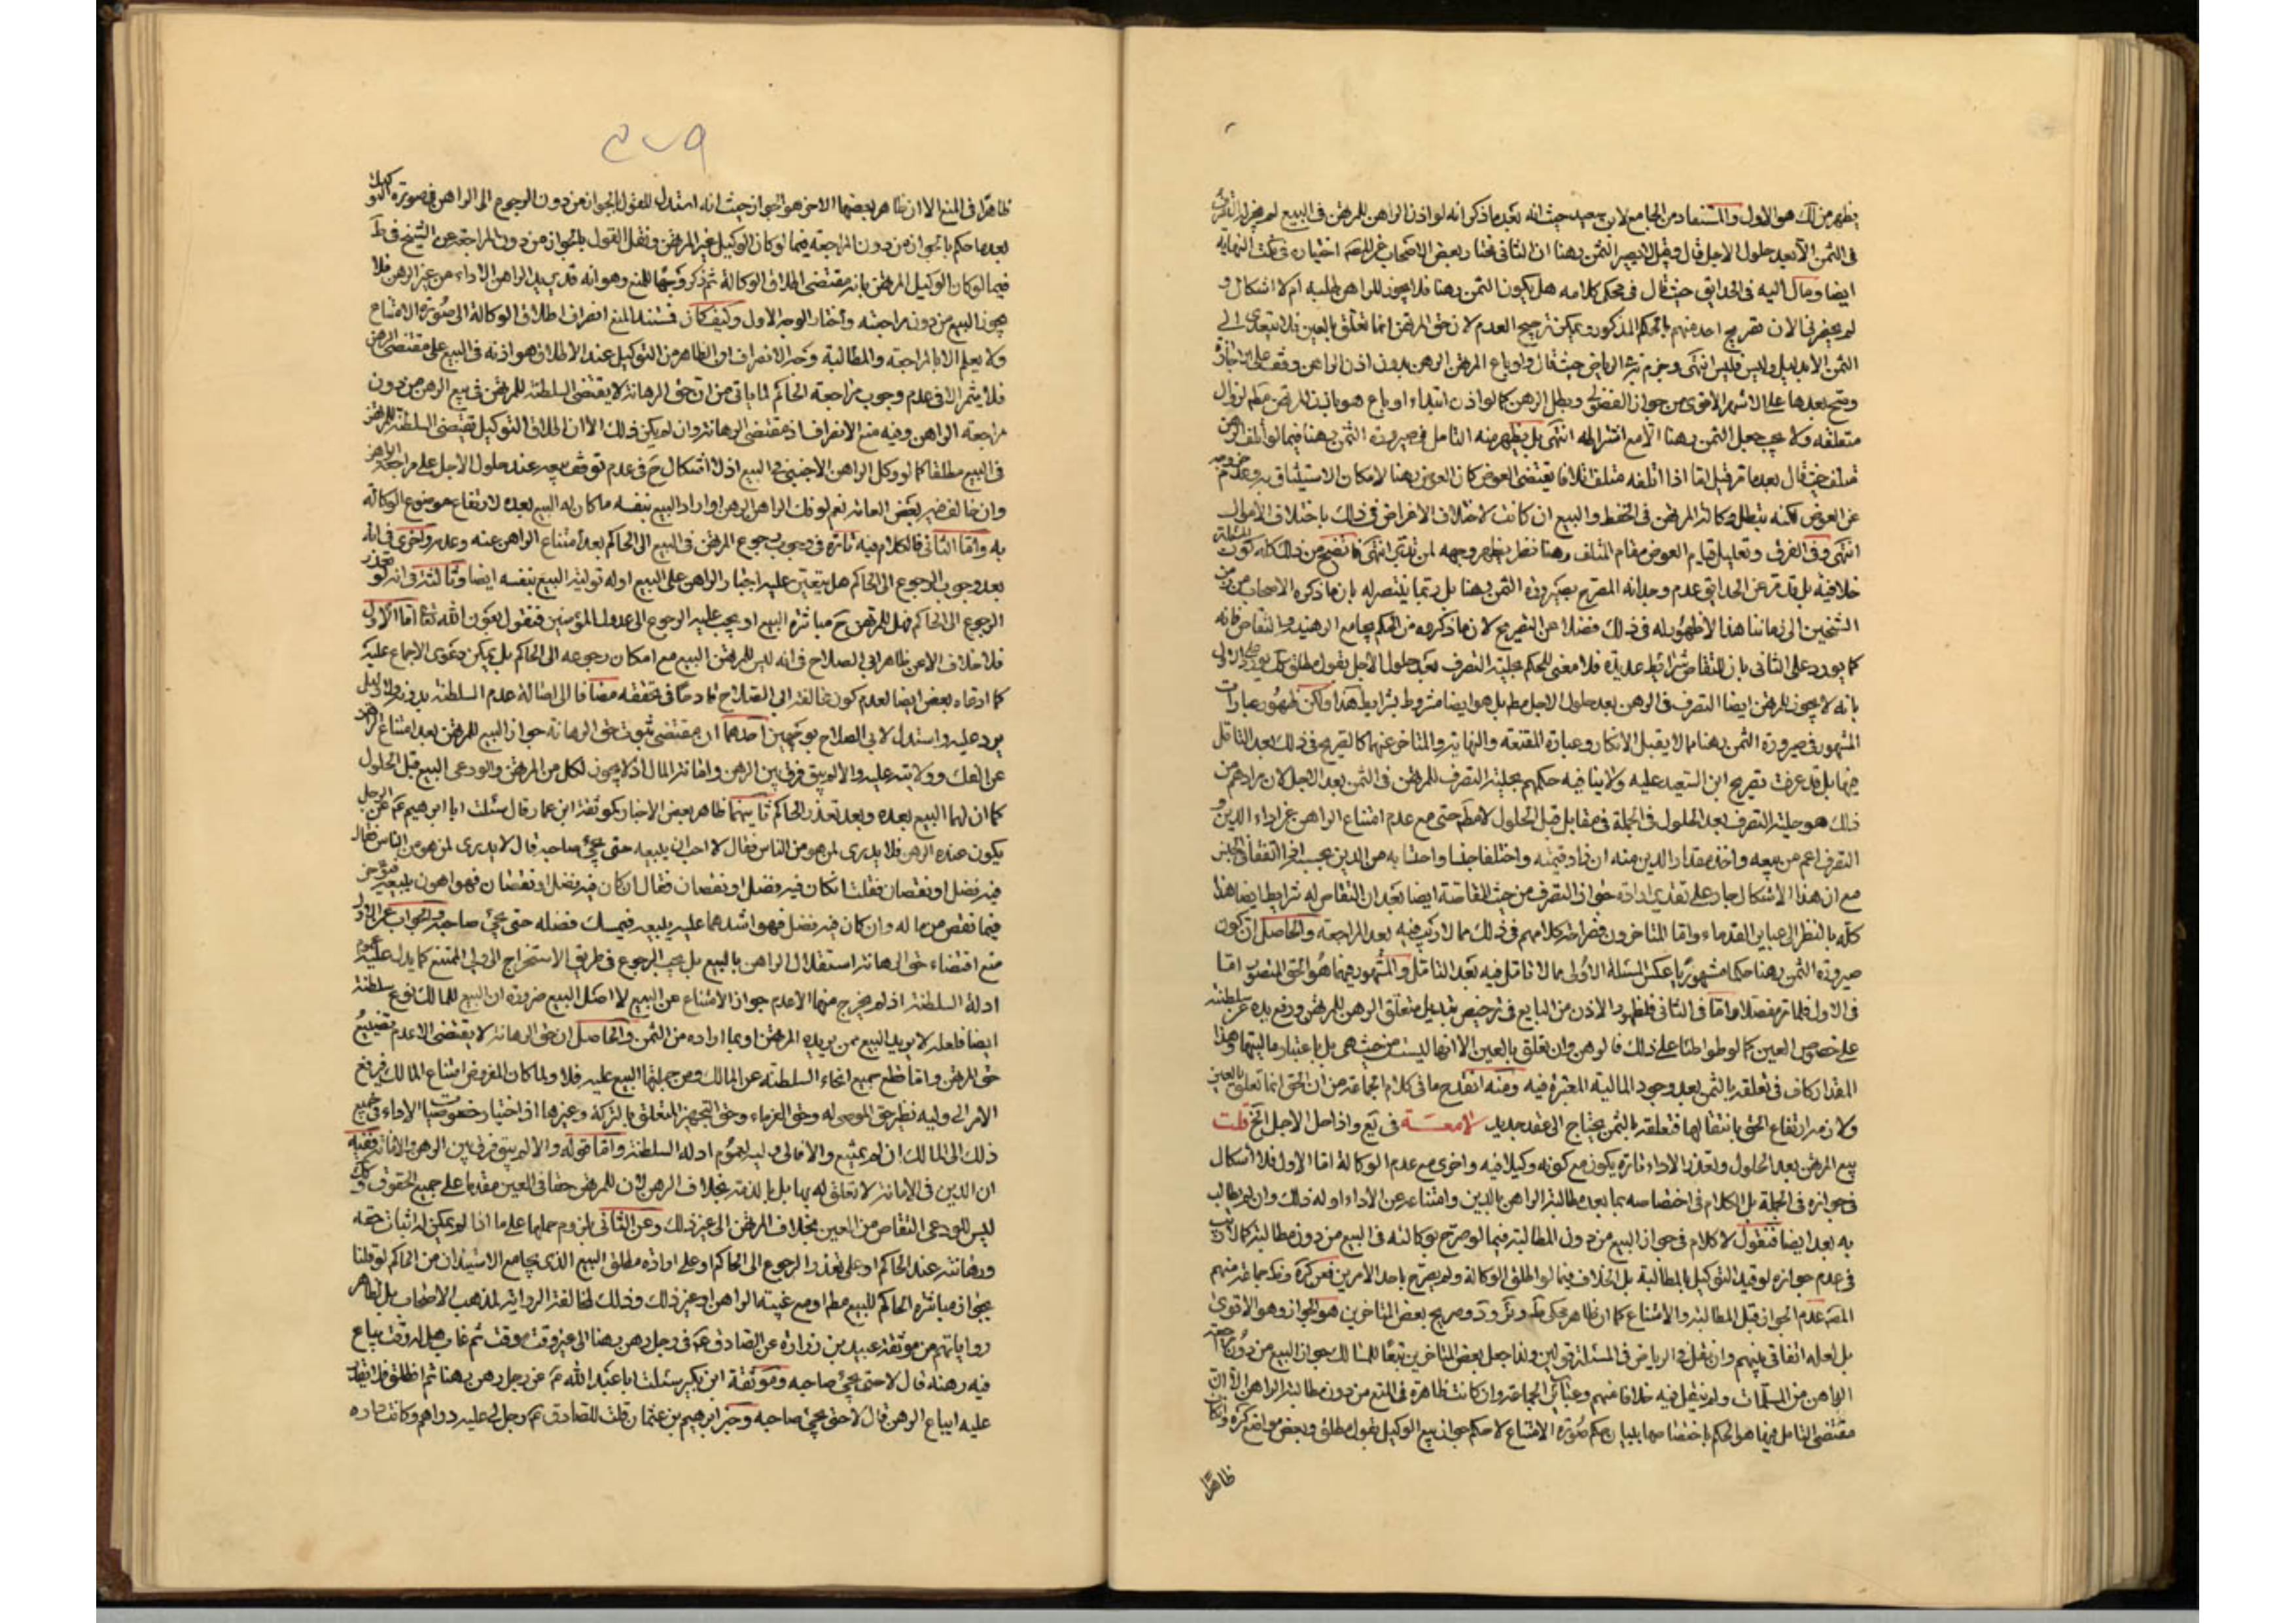 يظهر من لك هو الاول والمستفاد من الجامع لابن سعيد حيث انه بعد ما ذكر انه لو اذن الراهن للمرتهن في البيع لم يجز له التصرف
في الثمن الا بعد حلول الاجل قال وقيل لا يصير الثمن رهنا
ايضا ومال اليه في الحدائق حيث قال في محكي كلامه هل يكون الثمن رهنا فلا يجوز للراهن طلبه ام لا اشكال و
لم يحضرني الان تصريح احد منهم بالحكم المذكور ويمكن ترجيح العدم لان حق المرتهن انما تعلق بالعين فلا يتعدى الى
الثمن الا بدليل وليس فليس انتهى وجزم به في الرياض حيث قال ولو باع المرتهن الرهن بدون اذن الراهن وقف على اجازته
وصح بعدها على الاشهر الاقوى من جواز الفضولي وبطل الرهن كما لو اذن ابتداء او باع هو باذن المرتهن مطم لزوال
متعلقه ولا يجب جعل الثمن رهنا الا مع اشتراطه انتهى بل يظهر منه التامل في صيرورة الثمن رهنا فيما لو اتلف الرهن
متلف حيث قال بعد ما تر قيل اما اذا اتلفه متلف اتلافا يقتضى العوض كان العوض رهنا لامكان الاستيثاق به وعدم خروجه
عن العوض لكنه تبطل وكالة المرتهن في الحفظ والبيع ان كانت لاختلاف الاغراض في ذلك باختلاف الاموال
انتهى وفي الفرق وتعليل قيام العوض مقام المتلف رهنا نظر يظهر وجهه لمن تدبر انتهى فاتضح من ذلك كله كون المسئلة
خلافية بل قد مر عن الحدائق عدم وجدانه المصرح بصيرورة الثمن رهنا بل ربما ينتصر له بان ما ذكره الاصحاب من زمن
الشيخين الى زماننا هذا لا ظهور له في ذلك فضلا عن التصريح لان ما ذكروه من الحكم يجامع الرهنية والتقاص فانه
كما يورد على الثاني بان للتقاص شرائط عديدة فلا معنى للحكم بحلية التصرف بعد حلول الاجل بقول مطلق كك يورد على الاول
بانه لا يجوز للمرتهن ايضا التصرف في الرهن بعد حلول الاجل مطم بل هو ايضا مشروط بشرايط هذا ولكن ظهور عبارات
المشهور في صيرورة الثمن رهنا مما لا يقبل الانكار وعبارة المقنعة والنهاية والمتاخر عنهما كالصريح في ذلك بعد التامل
فيها بل قد عرفت تصريح ابن السعيد عليه ولا ينافيه حكمهم بحلية التصرف للمرتهن في الثمن بعد الاجل لان مرادهم من
ذلك هو حلية التصرف بعد الحلول في الجملة في مقابل قبل الحلول لا مطم حتى مع عدم امتناع الراهن عن اداء الدين و
التصرف اعم من بيعه واخذ مقدار الدين منه ان زاد قيمته واختلفا جنسا واحتسابه من الدين بحسب اذا اتفقا في الجنس
مع ان هذا الاشكال جار على تقدير ارادة جواز التصرف من حيث المقاصة ايضا بعد ان التقاص له شرايط ايضا هذا
كله بالنظر الى عباير القدماء واما المتاخرون فصراحة كلامهم في ذلك مما لا ريب فيه بعد المراجعة والحاصل ان كون
صيرورة الثمن رهنا حكما مشهوريا عكس المسئلة الاولى مما لا تامل فيه بعد التامل والمشهور فيهما هو الحق المنصور اما
في الاول فلما تر مفصلا واما في الثاني فلظهور الاذن من البايع في ترخيص تبديل متعلق الرهن للمرتهن ورفع يده عن سلطنته
على خصوص العين كما لو تواطئا على ذلك فالرهن وان تعلق بالعين الا انها ليست من حيث هي بل باعتبار ماليتها وهذا
المقدار كاف في تعلقه بالثمن بعد وجود المالية المعتبرة فيه ومنه انقدح ما في كلام الجماعة من ان الحق انما تعلق بالعين
ولازمه ارتفاع الحق بانتقالها فتعلقه بالثمن يحتاج الى عقد جديد لامعة في يع واذا حل الاجل الخ قلت
بيع المرتهن بعد الحلول وتعذر الاداء تارة يكون مع كونه وكيلا فيه واخرى مع عدم الوكالة اما الاول فلا اشكال
في جوازه في الجملة بل الكلام في اختصاصه بما بعد مطالبة الراهن بالدين وامتناعه عن الاداء او له ذلك وان لم يطالب
به بعد ايضا فنقول لا كلام في جواز البيع من دون المطالبة فيما لو صرح بوكالته في البيع من دون مطالبة كما لا ريب
في عدم جوازه لو قيد التوكيل بالمطالبة بل الخلاف فيما لو اطلق الوكالة ولم يصرح باحد الامرين فعن كره وتلمذ جماعة منهم
المص عدم الجواز قبل المطالبة والامتناع كما ان ظاهر محكي ط وصريح بعض المتاخرين هو الجواز وهو الاقوى
بل لعله اتفاقي بينهم وان نقل في الرياض في المسئلة قولين ولذا جعل بعض المتاخرين تبعا للمسالك جواز البيع من دون مراجعة
الراهن من المسلمات ولم ينقل فيه خلافا منهم وعبائر الجماعة وان كانت ظاهرة في المنع من دون مطالبة الراهن الا ان
مقتضى التامل فيها هو الحكم باختصاصها ببيان حكم صورة الامتناع لا حكم جواز بيع الوكيل بقول مطلق وبعض مواضع كره وان كان
ظاهرا
ظاهرا في المنع الا ان ظاهر بعضها الاخر هو الجواز حيث انه استدل للقول بالجواز من دون الرجوع الى الراهن في صورة التوكيل
بعد ما حكم بالجواز من دون المراجعة فيما لو كان الوكيل غير المرتهن ونقل القول بالجواز من دون المراجعة عن الشيخ في ط
فيما لو كان الوكيل المرتهن بانه مقتضى اطلاق الوكالة ثم ذكر وجها للمنع وهو انه قد يريد الراهن الاداء من غير الرهن فلا
يجوز البيع من دون مراجعته واختار الوجه الاول وكيف كان فمستند المنع انصراف اطلاق الوكالة الى صورة الامتناع
ولا يعلم الا بالمراجعة والمطالبة وجه الانصراف ان الظاهر من التوكيل عند الاطلاق هو اذنه في البيع على مقتضى الرهن
فلا يثمر الا في عدم وجوب مراجعة الحاكم لما ياتي من ان حق الرهانة لا يقتضى السلطنة للمرتهن في بيع الرهن من دون
مراجعة الراهن وفيه منع الانصراف اذ مقتضى الرهانة وان لم يكن ذلك الا ان اطلاق التوكيل يقتضى السلطنة للمرتهن
في البيع مطلقا كما لو وكل الراهن الاجنبي في البيع اذ لا اشكال ح في عدم توقف بيعه عند حلول الاجل على مراجعة الراهن
وان خالف فيه بعض العامة نعم لو فك الراهن الرهن او اراد البيع بنفسه ما كان له البيع بعده لارتفاع موضوع الوكالة
به واما الثاني فالكلام فيه تارة في وجوب رجوع المرتهن في البيع الى الحاكم بعد امتناع الراهن عنه وعدمه واخرى في انه
بعد وجوب الرجوع الى الحاكم هل يتعين عليه اجبار الراهن على البيع او له تولية البيع بنفسه ايضا وثالثة في انه لو تعذر
الرجوع الى الحاكم فهل للمرتهن ح مباشرة البيع او يجب عليه الرجوع الى عدول المؤمنين فنقول بعون الله تعالى اما الاول
فلا خلاف الا عن ظاهر ابي الصلاح في انه ليس للمرتهن البيع مع امكان رجوعه الى الحاكم بل يمكن دعوى الاجماع عليه
كما ادعاه بعض ايضا لعدم كون مخالفة ابي الصلاح قادحا في تحققه مضافا الى اصالة عدم السلطنة بدونه ولا دليل
يرد عليه واستدل لابي الصلاح بوجهين احدهما ان مقتضى ثبوت حق الرهانة جواز البيع للمرتهن بعد امتناع الراهن
عن الفك وولايته عليه والا لم يبق فرق بين الرهن وامانة المال اذ لا يجوز لكل من المرتهن والودعي البيع قبل الحلول
كما ان لهما البيع بعده وبعد تعذر الحاكم ثانيهما ظاهر بعض الاخبار كموثقة ابن عمار قال سئلت ابا ابرهيم ع عن الرجل
يكون عنده الرهن فلا يدري لمن هو من الناس فقال لا احب ان يبيعه حتى يجئ صاحبه قال لا يدري لمن هو من الناس فقال
فيه فضل او نقصان فقلت ان كان فيه فضل او نقصان فقال ان كان فيه فضل او نقصان فهو اهون يبيعه فيؤجر
فيما نقص من ماله وان كان فيه فضل فهو اشدهما عليه يبيعه فيمسك فضله حتى يجئ صاحبه والجواب عن الاول
منع اقتضاء حق الرهانة استقلال الراهن بالبيع بل يجب الرجوع في طريق الاستخراج الى ولي الممتنع كما يدل عليه عموم
ادلة السلطنة اذ لم يخرج منها الا عدم جواز الامتناع عن البيع لا اصل البيع ضرورة ان البيع للمالك نوع سلطنة
ايضا فلعله لا يريد البيع ممن يريده المرتهن او بما اراده من الثمن والحاصل ان حق الرهانة لا يقتضى الا عدم تضييع
حق المرتهن واما قطع جميع انحاء السلطنة عن المالك ومن جملتها البيع عليه فلا ولما كان المفروض امتناع المالك فيرفع
الامر الى وليه نظير حق الموصى له وحق الغرماء وحق التجهيز المتعلق بالتركة وغيرها اذ اختيار خصوصيات الاداء في جميع
ذلك الى المالك ان لم يمتنع والا فالى وليه لعموم ادلة السلطنة واما قوله والا لم يبق فرق بين الرهن والامانة ففيه
ان الدين في الامانة لا تعلق له بها بل بالذمة بخلاف الرهن لان للمرتهن حقا في العين مقدما على جميع الحقوق وكك
ليس للودعي التقاص من العين بخلاف المرتهن الى غير ذلك وعن الثاني بلزوم حملها على ما اذا لم يمكن له اثبات حقه
ورهانته عند الحاكم او على تعذر الرجوع الى الحاكم او على ارادة مطلق البيع الذي يجامع الاستيذان من الحاكم لو قلنا
بجواز مباشرة الحاكم للبيع مطم او مع غيبة الراهن او غير ذلك وذلك لمخالفة الرواية لمذهب الاصحاب بل لظاهر
رواياتهم من موثقة عبيد بن زرارة عن الصادق ع في رجل رهن رهنا الى غير وقت موقت ثم غاب هل له وقت يباع
فيه رهنه قال لا حتى يجئ صاحبه وموثقة ابن بكير سئلت ابا عبد الله ع عن رجل رهن رهنا ثم انطلق فلا يقدر
عليه ايباع الرهن قال لا حتى يجئ صاحبه وخبر ابرهيم بن عثمان قلت للصادق ع رجل لي عليه دراهم وكانت داره